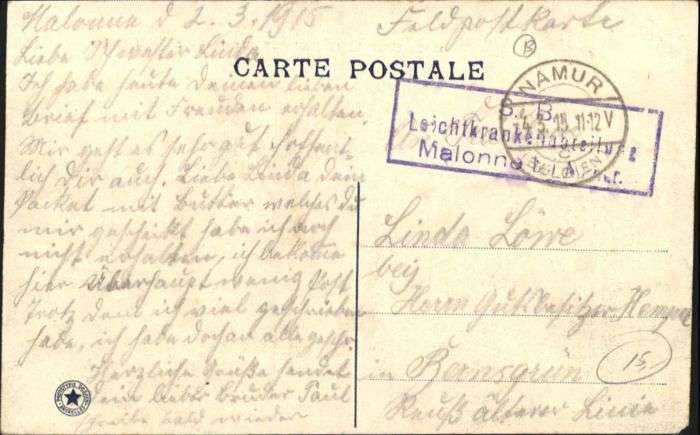 Malonne d 2.3.1915
Feldpostkarte
Liebe Schwester Linda
CARTE POSTALE
Ich habe heute deinen lieben
Brief mit Freuden erhalten.
Mir geht es sehr gut hoffent-
lich Dir auch. Liebe Linda dein
Packet mit Butter welches du
mir geschikt habe ich noch
nicht erhalten, ich bekome
hier Überhaupt wenig Post
Trotz dem ich viel geschrieben
habe, ich habe doch an alle geschr.
Herzliche Grüße sendet
dein lieber Bruder Paul
schreibe bald wieder
B
NAMUR
11-12 V
BELGIEN
S. B.
Leichtkrankenabteilung
Malonne
Linda Löwe
bei
Herrn Gutsbesitzer Hemp
in
Bernsgrün
15,
Reuß älterer Linie